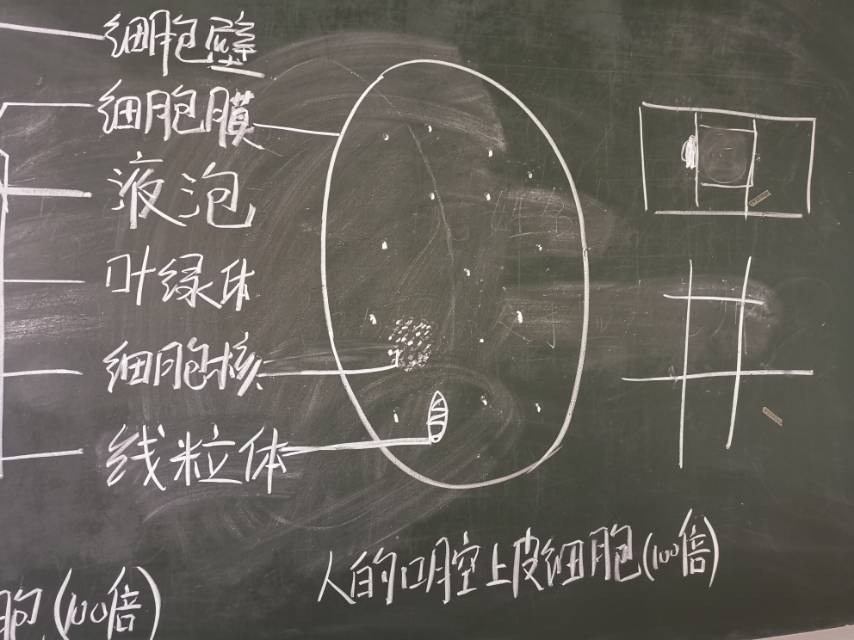 细胞壁
细胞膜
液泡
叶绿体
细胞核
线粒体
胞(100倍)
人的口腔上皮细胞(100倍)